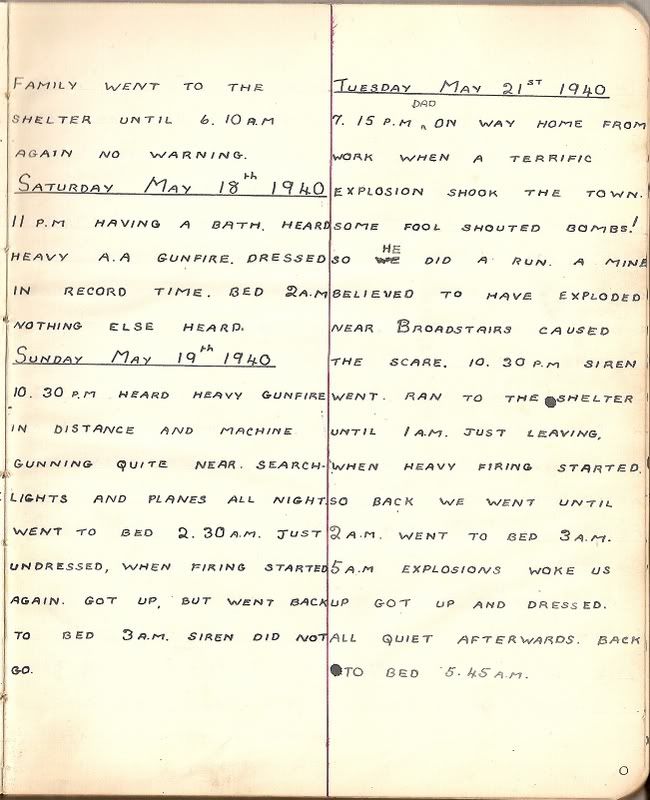 FAMILY WENT TO THE
SHELTER UNTIL 6.10 A.M
AGAIN NO WARNING.
SATURDAY MAY 18th 1940
11 P.M HAVING A BATH. HEARD
HEAVY A.A GUNFIRE. DRESSED
IN RECORD TIME. BED 2A.M
NOTHING ELSE HEARD.
SUNDAY MAY 19th 1940
10.30 P.M HEARD HEAVY GUNFIRE
IN DISTANCE AND MACHINE
GUNNING QUITE NEAR. SEARCH-
LIGHTS AND PLANES ALL NIGHT.
WENT TO BED 2.30 A.M. JUST
UNDRESSED, WHEN FIRING STARTED
AGAIN. GOT UP, BUT WENT BACK
TO BED 3 A.M. SIREN DID NOT
GO.
TUESDAY MAY 21ST 1940
DAD
7.15 P.M ON WAY HOME FROM
WORK WHEN A TERRIFIC
EXPLOSION SHOOK THE TOWN.
SOME FOOL SHOUTED BOMBS!
HE
SO WE DID A RUN. A MINE
BELIEVED TO HAVE EXPLODED
NEAR BROADSTAIRS CAUSED
THE SCARE. 10.30 P.M SIREN
WENT. RAN TO THE SHELTER
UNTIL 1 A.M. JUST LEAVING,
WHEN HEAVY FIRING STARTED.
SO BACK WE WENT UNTIL
2 A.M. WENT TO BED 3 A.M.
5 A.M EXPLOSIONS WOKE US
UP GOT UP AND DRESSED.
ALL QUIET AFTERWARDS. BACK
TO BED 5.45 A.M.